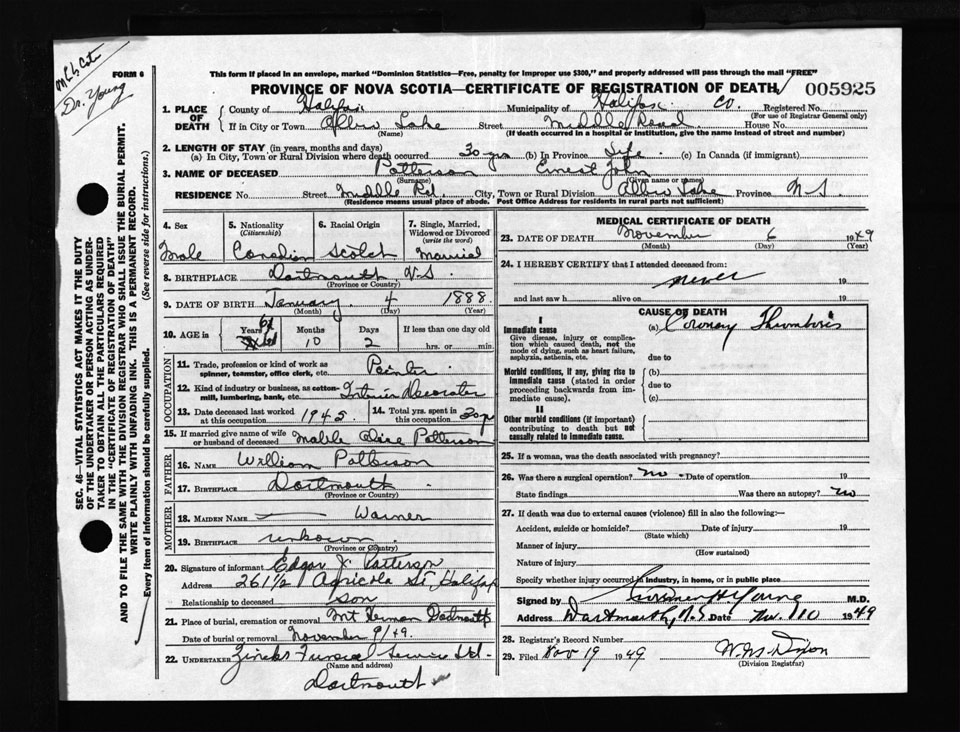 Dr. Young
FORM 6
This form if placed in an envelope, marked "Dominion Statistics—Free, penalty for improper use $300," and properly addressed will pass through the mail "FREE"
PROVINCE OF NOVA SCOTIA—CERTIFICATE OF REGISTRATION OF DEATH
005925
1. PLACE OF DEATH
County of Halifax Municipality of Halifax Co. Registered No.
(For use of Registrar General only)
If in City or Town Albro Lake Street Middle Road House No.
(Name) (If death occurred in a hospital or institution, give the name instead of street and number)
2. LENGTH OF STAY (in years, months and days)
(a) In City, Town or Rural Division where death occurred 30 yrs (b) In Province Life (c) In Canada (if immigrant)
3. NAME OF DECEASED Patterson Ernest John
(Surname) (Given name or names)
RESIDENCE No. Street Middle Rd. City, Town or Rural Division Albro Lake Province N S
(Residence means usual place of abode. Post Office Address for residents in rural parts not sufficient)
4. Sex 5. Nationality (Citizenship) 6. Racial Origin 7. Single, Married, Widowed or Divorced (write the word)
Male Canadian Scotch Married
8. BIRTHPLACE Dartmouth N.S
(Province or Country)
9. DATE OF BIRTH January 4 1888
(Month) (Day) (Year)
10. AGE in Years 61 Months 10 Days 2 If less than one day old
hrs. or min.
OCCUPATION
11. Trade, profession or kind of work as spinner, teamster, office clerk, etc. Painter
12. Kind of industry or business, as cotton-mill, lumbering, bank, etc. Interior Decorator
13. Date deceased last worked at this occupation 1945 14. Total yrs. spent in this occupation 30 yrs
15. If married give name of wife or husband of deceased Mable Alice Patterson
FATHER
16. NAME William Patterson
17. BIRTHPLACE Dartmouth
(Province or Country)
MOTHER
18. MAIDEN NAME — Warner
19. BIRTHPLACE unkown
(Province or Country)
20. Signature of informant Edgar J. Patterson
Address 261 1/2 Agricola St Halifax
Relationship to deceased son
21. Place of burial, cremation or removal Mt Herman Dartmouth
Date of burial or removal November 9/49.
22. UNDERTAKER Zincks Funeral Service Ltd.
(Name and address)
Dartmouth
MEDICAL CERTIFICATE OF DEATH
23. DATE OF DEATH November 6 1949
(Month) (Day) (Year)
24. I HEREBY CERTIFY that I attended deceased from:
never 19
and last saw h alive on 19
CAUSE OF DEATH
I
Immediate cause (a) Coronary Thrombosis
Give disease, injury or complication which caused death, not the mode of dying, such as heart failure, asphyxia, asthenia, etc.
due to
Morbid conditions, if any, giving rise to immediate cause (stated in order proceeding backwards from immediate cause).
(b)
due to
(c)
II
Other morbid conditions (if important) contributing to death but not causally related to immediate cause.
25. If a woman, was the death associated with pregnancy?
26. Was there a surgical operation? no. Date of operation 19
State findings Was there an autopsy? no
27. If death was due to external causes (violence) fill in also the following:—
Accident, suicide or homicide? Date of injury 19
(State which)
Manner of injury
(How sustained)
Nature of injury
Specify whether injury occurred in industry, in home, or in public place
Signed by Young M.D.
Address Dartmouth, N.S. Date Nov. 10 1949
28. Registrar's Record Number
29. Filed Nov 19 1949 Dixon
(Division Registrar)
SEC. 46—VITAL STATISTICS ACT MAKES IT THE DUTY
OF THE UNDERTAKER OR PERSON ACTING AS UNDER-
TAKER TO OBTAIN ALL THE PARTICULARS REQUIRED
IN THE "CERTIFICATE OF REGISTRATION OF DEATH"
AND TO FILE THE SAME WITH THE DIVISION REGISTRAR WHO SHALL ISSUE THE BURIAL PERMIT.
WRITE PLAINLY WITH UNFADING INK. THIS IS A PERMANENT RECORD.
Every item of information should be carefully supplied. (See reverse side for instructions.)